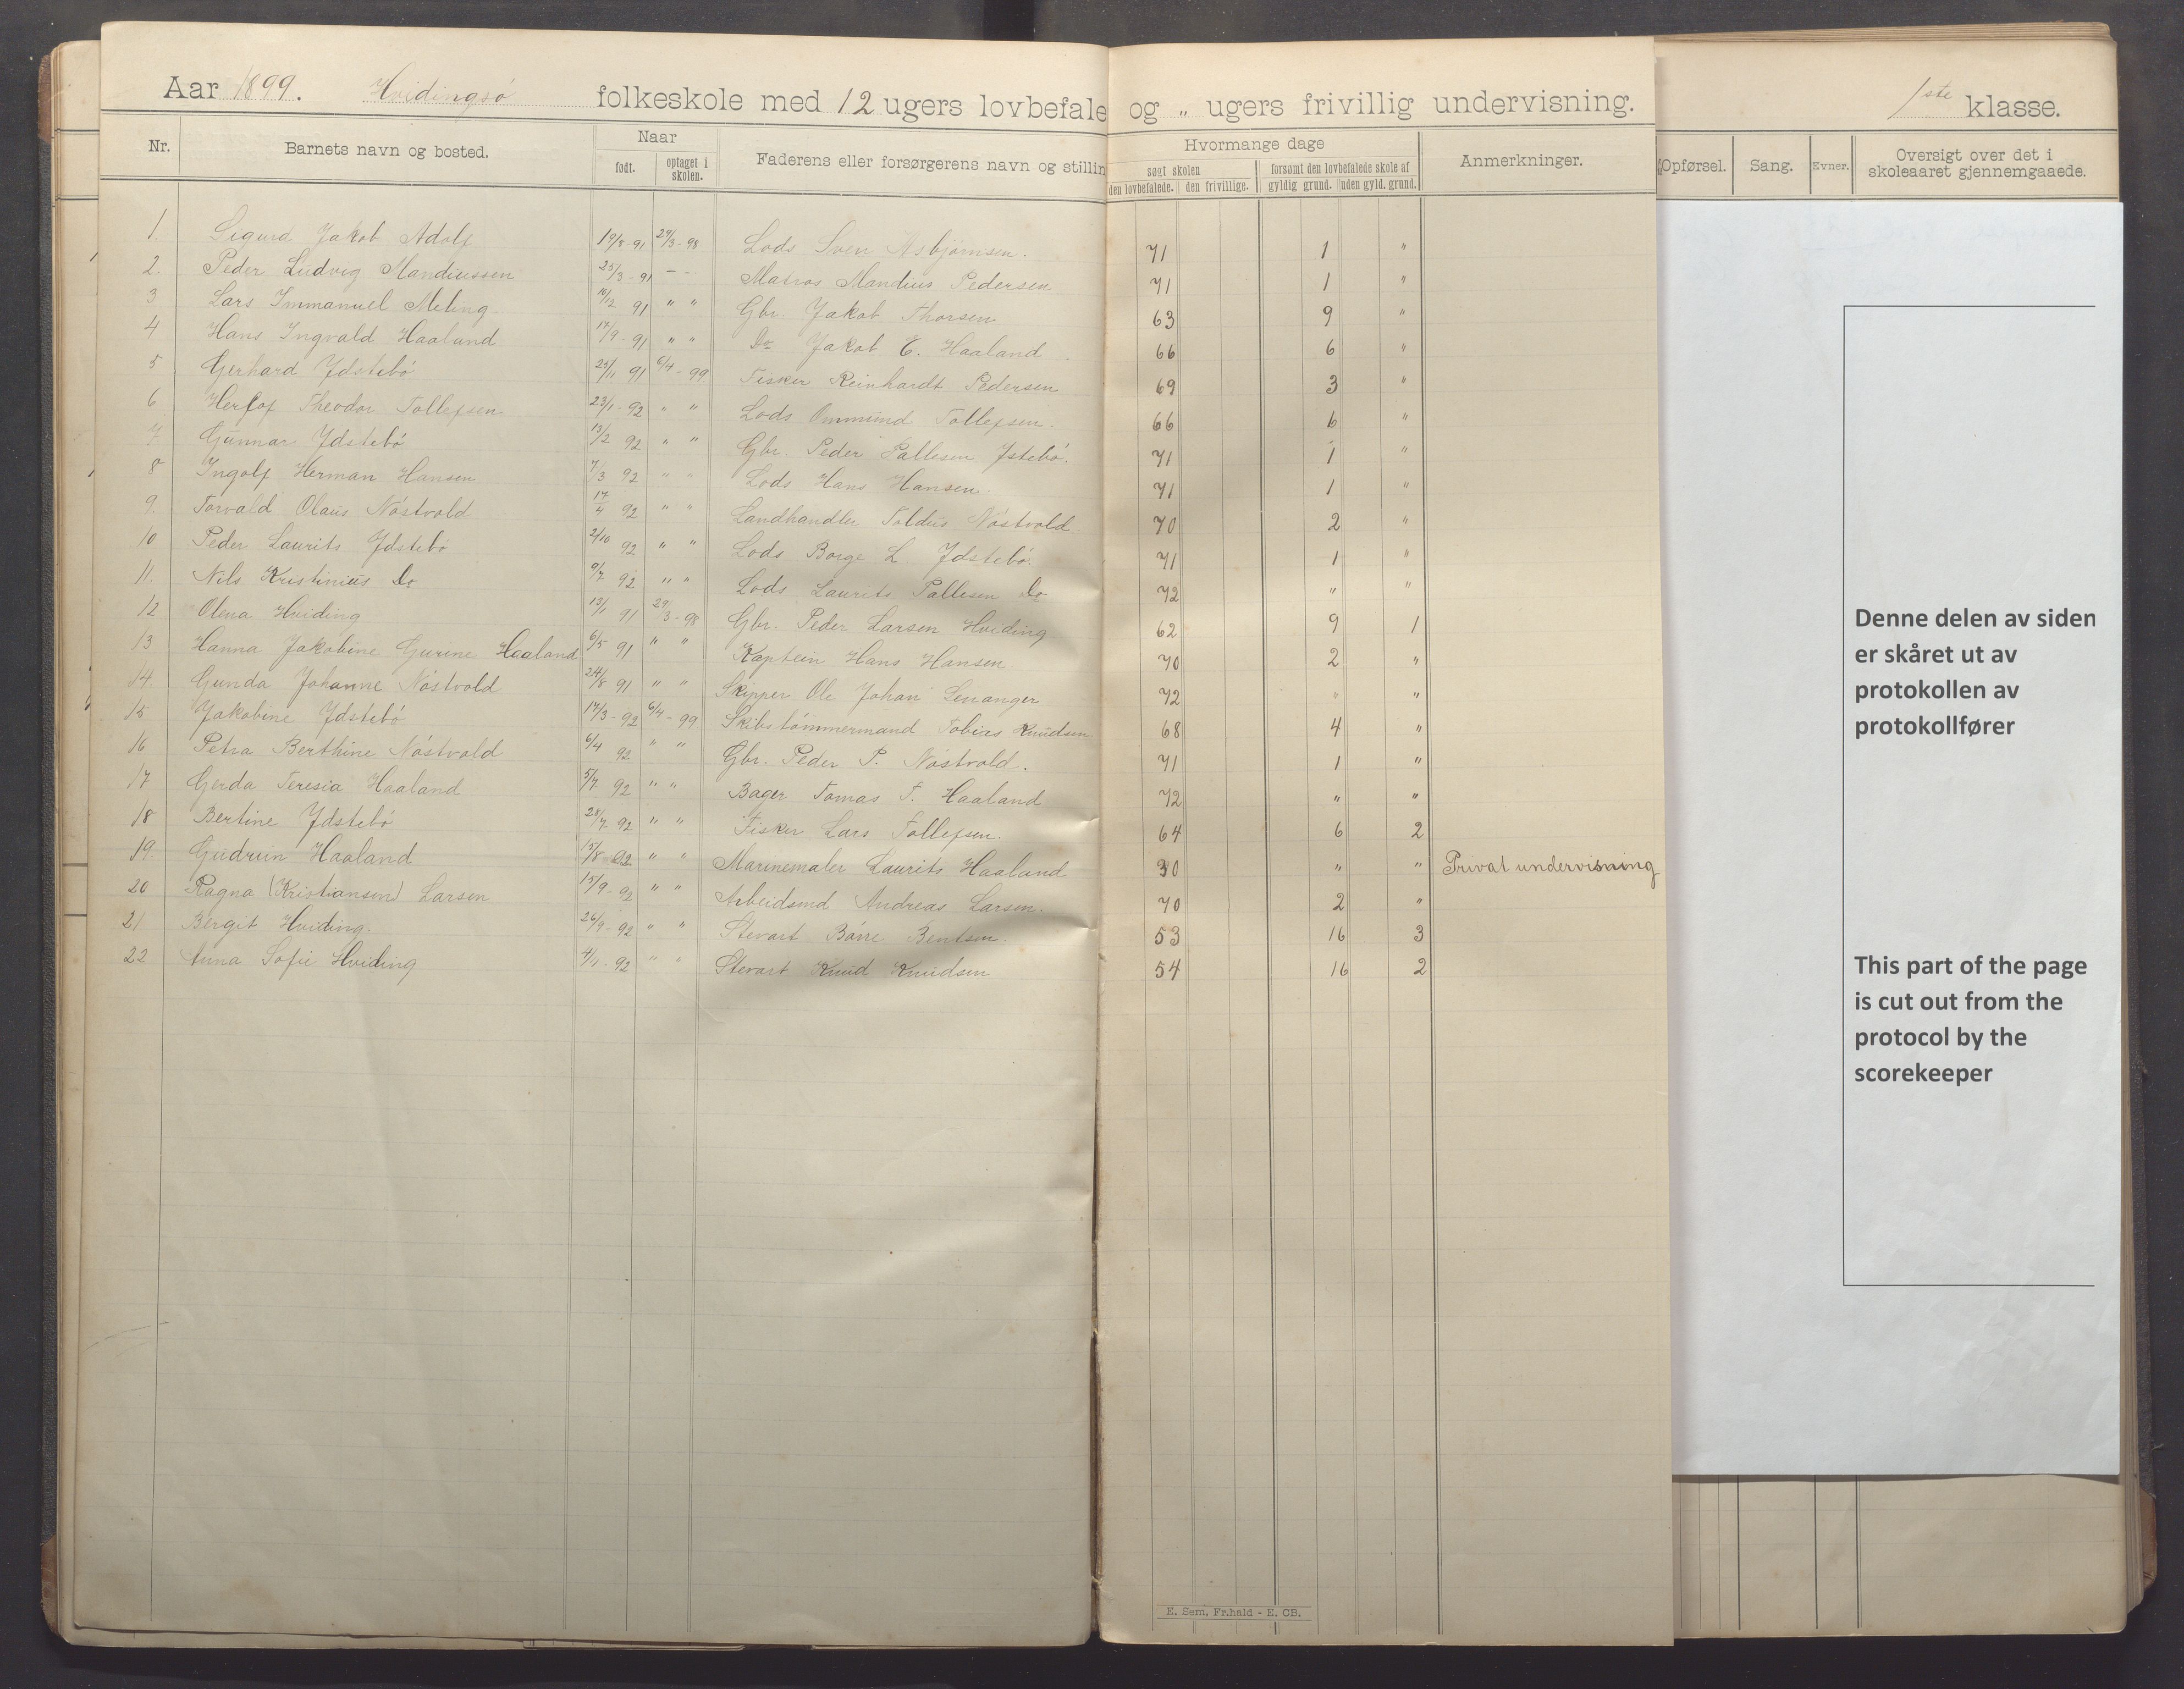 Aar 1899. Hvidingsø folkeskole med 12 ugers lovbefale og „ ugers frivillig undervisning. 1ste klasse.
Nr. Barnets navn og bosted. Naar født. optaget i skolen. Faderens eller forsørgerens navn og stillin Hvormange dage søgt skolen den lovbefalede. den frivillige. forsømt den lovbefalede skole af gyldig grund. uden gyld. grund. Anmerkninger. Opførsel. Sang. Evner. Oversigt over det i skoleaaret gjennemgaaede.
1. Sigurd Jakob Adolf 19/8-91 29/3-98 Lods Sven Asbjørnsen. 71 1 "
2. Peder Ludvig Mandiussen 25/3-91 - - Matros Mandius Pedersen 71 1 "
3 Lars Immanuel Meling 16/12 91 " " Gbr. Jakob Thorsen 63 9 "
4 Hans Ingvald Haaland 17/9-91 " " Do Jakob E. Haaland 66 6 "
5 Gerhard Ydstebö 25/11 91 6/4-99 Fisker Reinhardt Pedersen 69 3 "
6 Herlof Theodor Tollefsen 23/1-92 " " Lods Ommund Tollefsen. 66 6 "
7. Gunnar Ydstebö 13/2 92 " " Gbr. Peder Pallesen Ystebö. 71 1 "
8 Ingolf Herman Hansen 7/3 92 " " Lods Hans Hansen 71 1 "
9. Torvald Olaus Nöstvold 17/4 92 " " Landhandler Toldus Nöstvold 70 2 "
10 Peder Laurits Ydstebö 2/10 92 " " Lods Borge L. Ydstebö 71 1 "
11. Nils Kristinius Do 9/7 92 " " Lods Laurits Pallesen Do 72 " "
12 Olena Hviding 13/1 91 29/3-98 Gbr. Peder Larsen Hviding 62 9 1
13. Hanna Jakobine Gurine Haaland 6/5 91 " " Kaptein Hans Hansen. 70 2 "
14. Gunda Johanne Nöstvold 24/8 91 " " Skipper Ole Johan 72 " "
15 Jakobine Ydstebö 17/3-92 6/4-99 Skibstömmermand Tobias Knudsen 68 4 "
16 Petra Berthine Nöstvold 6/4 92 " " Gbr. Peder P. Nöstvold. 71 1 "
17 Gerda Teresia Haaland 5/7 92 " " Bager Tomas T. Haaland 72 " "
18 Bertine Ydstebö 28/7 92 " " Fisker Lars Tollefsen. 64 6 2
19. Gudrun Haaland 15/8 92 " " Marinemaler Laurits Haaland 30 " " Privat undervisning
20 Ragna (Kristiansen) Larsen 15/9-92 " " Arbeidsmd Andreas Larsen. 70 2 "
21 Bergit Hviding. 26/9-92 " " Stevart Börre Bentsen. 53 16 3
22 Anna Sofie Hviding 4/11-92 " " Stevart Knud Knudsen 54 16 2
Denne delen av siden
er skåret ut av
protokollen av
protokollfører
This part of the page
is cut out from the
protocol by the
scorekeeper
E. Sem, Fr.hald - E. CB.